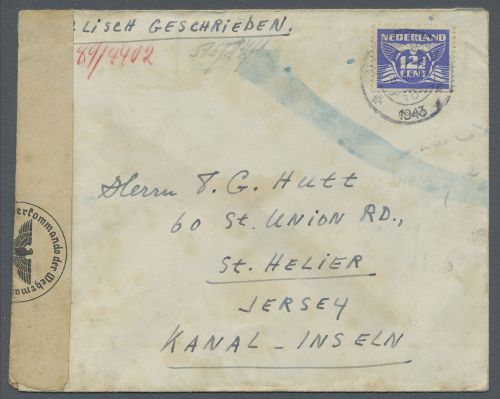 LLISCH GESCHRIEBEN.
89/4402
NEDERLAND
12½
CENT
1943
Herrn T. G. Hutt
60 St. Union Rd.,
St. Helier
Jersey
Kanal-Inseln
erkommando der Wehrma